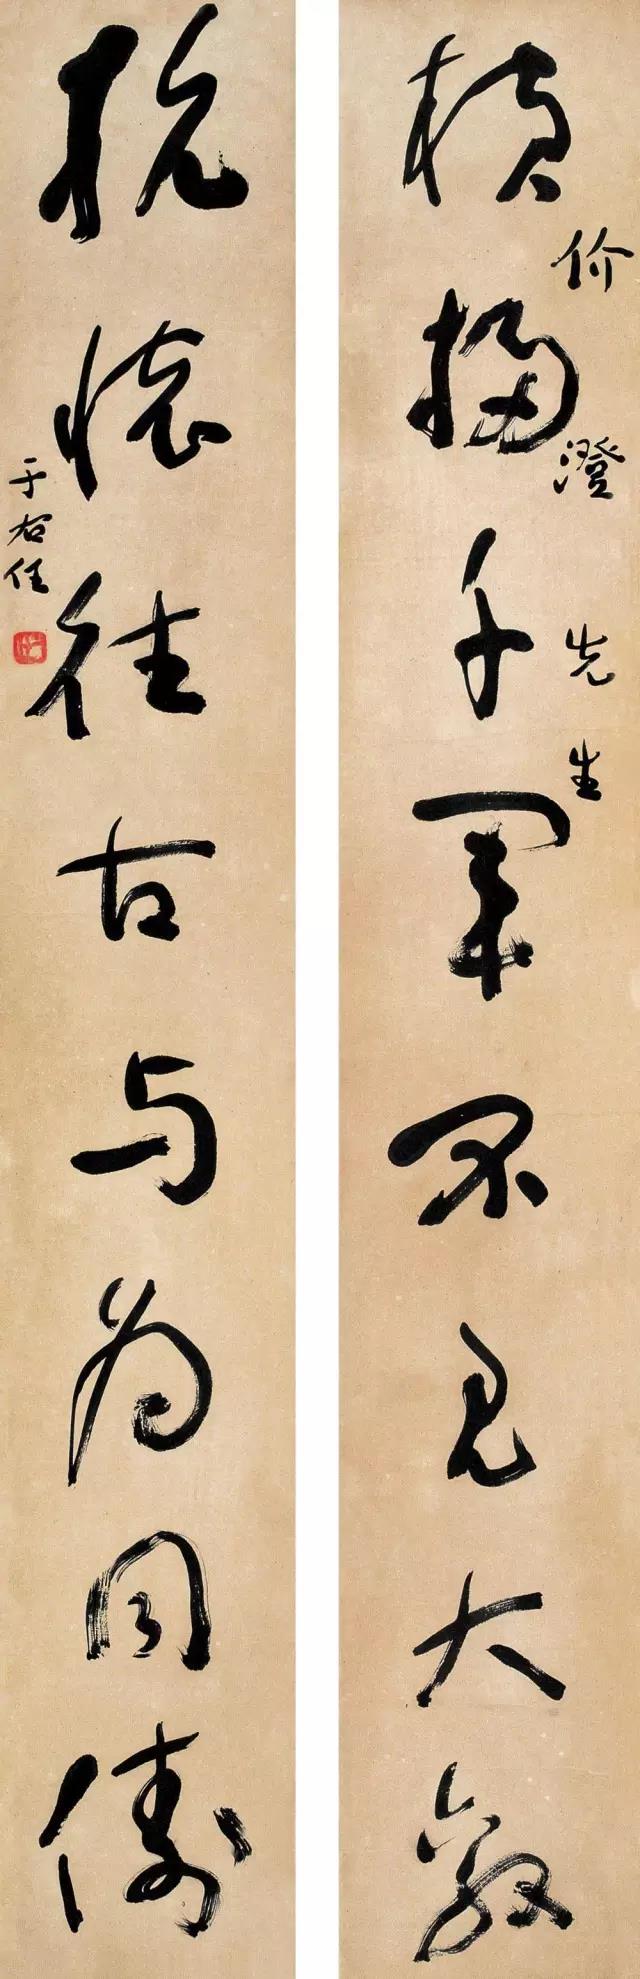 横扫千军不见大敌
价澄先生
抗怀往古与为同俦
于右任